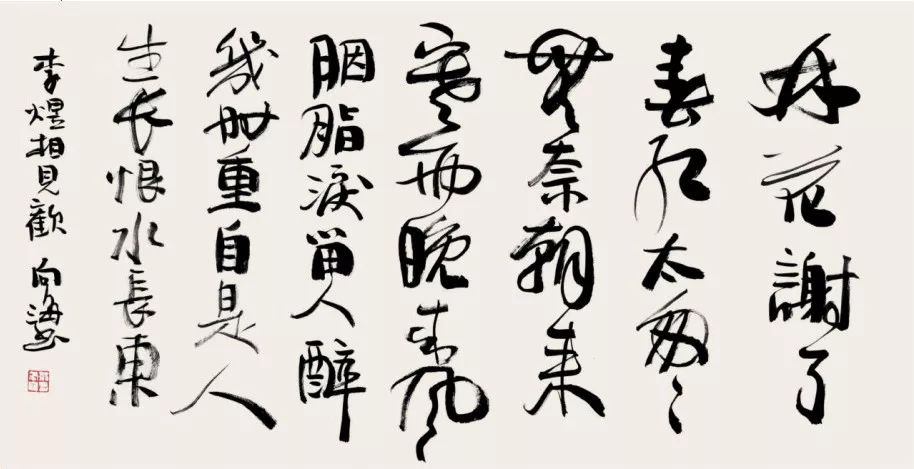 林花謝了
春紅太匆匆
無奈朝来
寒雨晚来風
胭脂淚留人醉
幾時重自是人
生长恨水長東
李煜相見歡 向